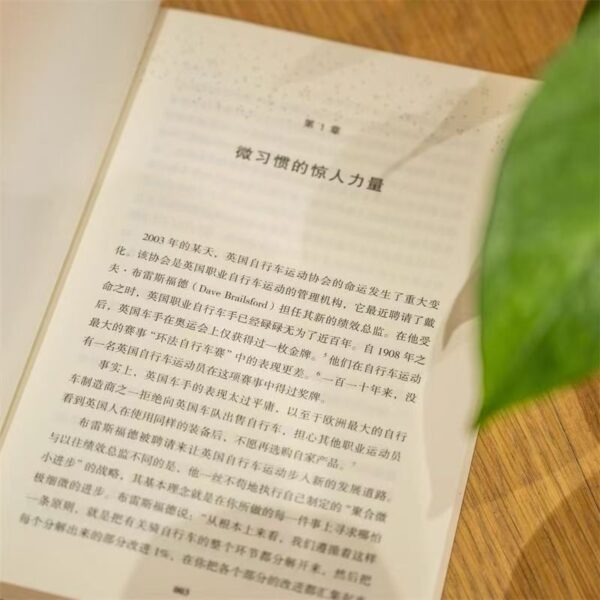 第 1 章
微习惯的惊人力量
2003 年的某天，英国自行车运动协会的命运发生了重大变
化。该协会是英国职业自行车运动的管理机构，它最近聘请了戴
夫·布雷斯福德（Dave Brailsford）担任其新的绩效总监。在他受
命之时，英国职业自行车手已经碌碌无为了近百年。自 1908 年之
后，英国车手在奥运会上仅获得过一枚金牌。5 他们在自行车运动
最大的赛事“环法自行车赛”中的表现更差。6 一百一十年来，没
有一名英国自行车运动员在这项赛事中得过奖牌。
事实上，英国车手的表现太过平庸，以至于欧洲最大的自行
车制造商之一拒绝向英国车队出售自行车，担心其他职业运动员
看到英国人在使用同样的装备后，不愿再选购自家产品。7
布雷斯福德被聘请来让英国自行车运动步入新的发展道路。
与以往绩效总监不同的是，他一丝不苟地执行自己制定的“聚合微
小进步”的战略，其基本理念就是在你所做的每一件事上寻求哪怕
极细微的进步。布雷斯福德说：“从根本上来看，我们遵循着这样
一条原则，就是把有关骑自行车的整个环节都分解开来，然后把
每个分解出来的部分改进 1%，在你把各个部分的改进都汇集起来
003